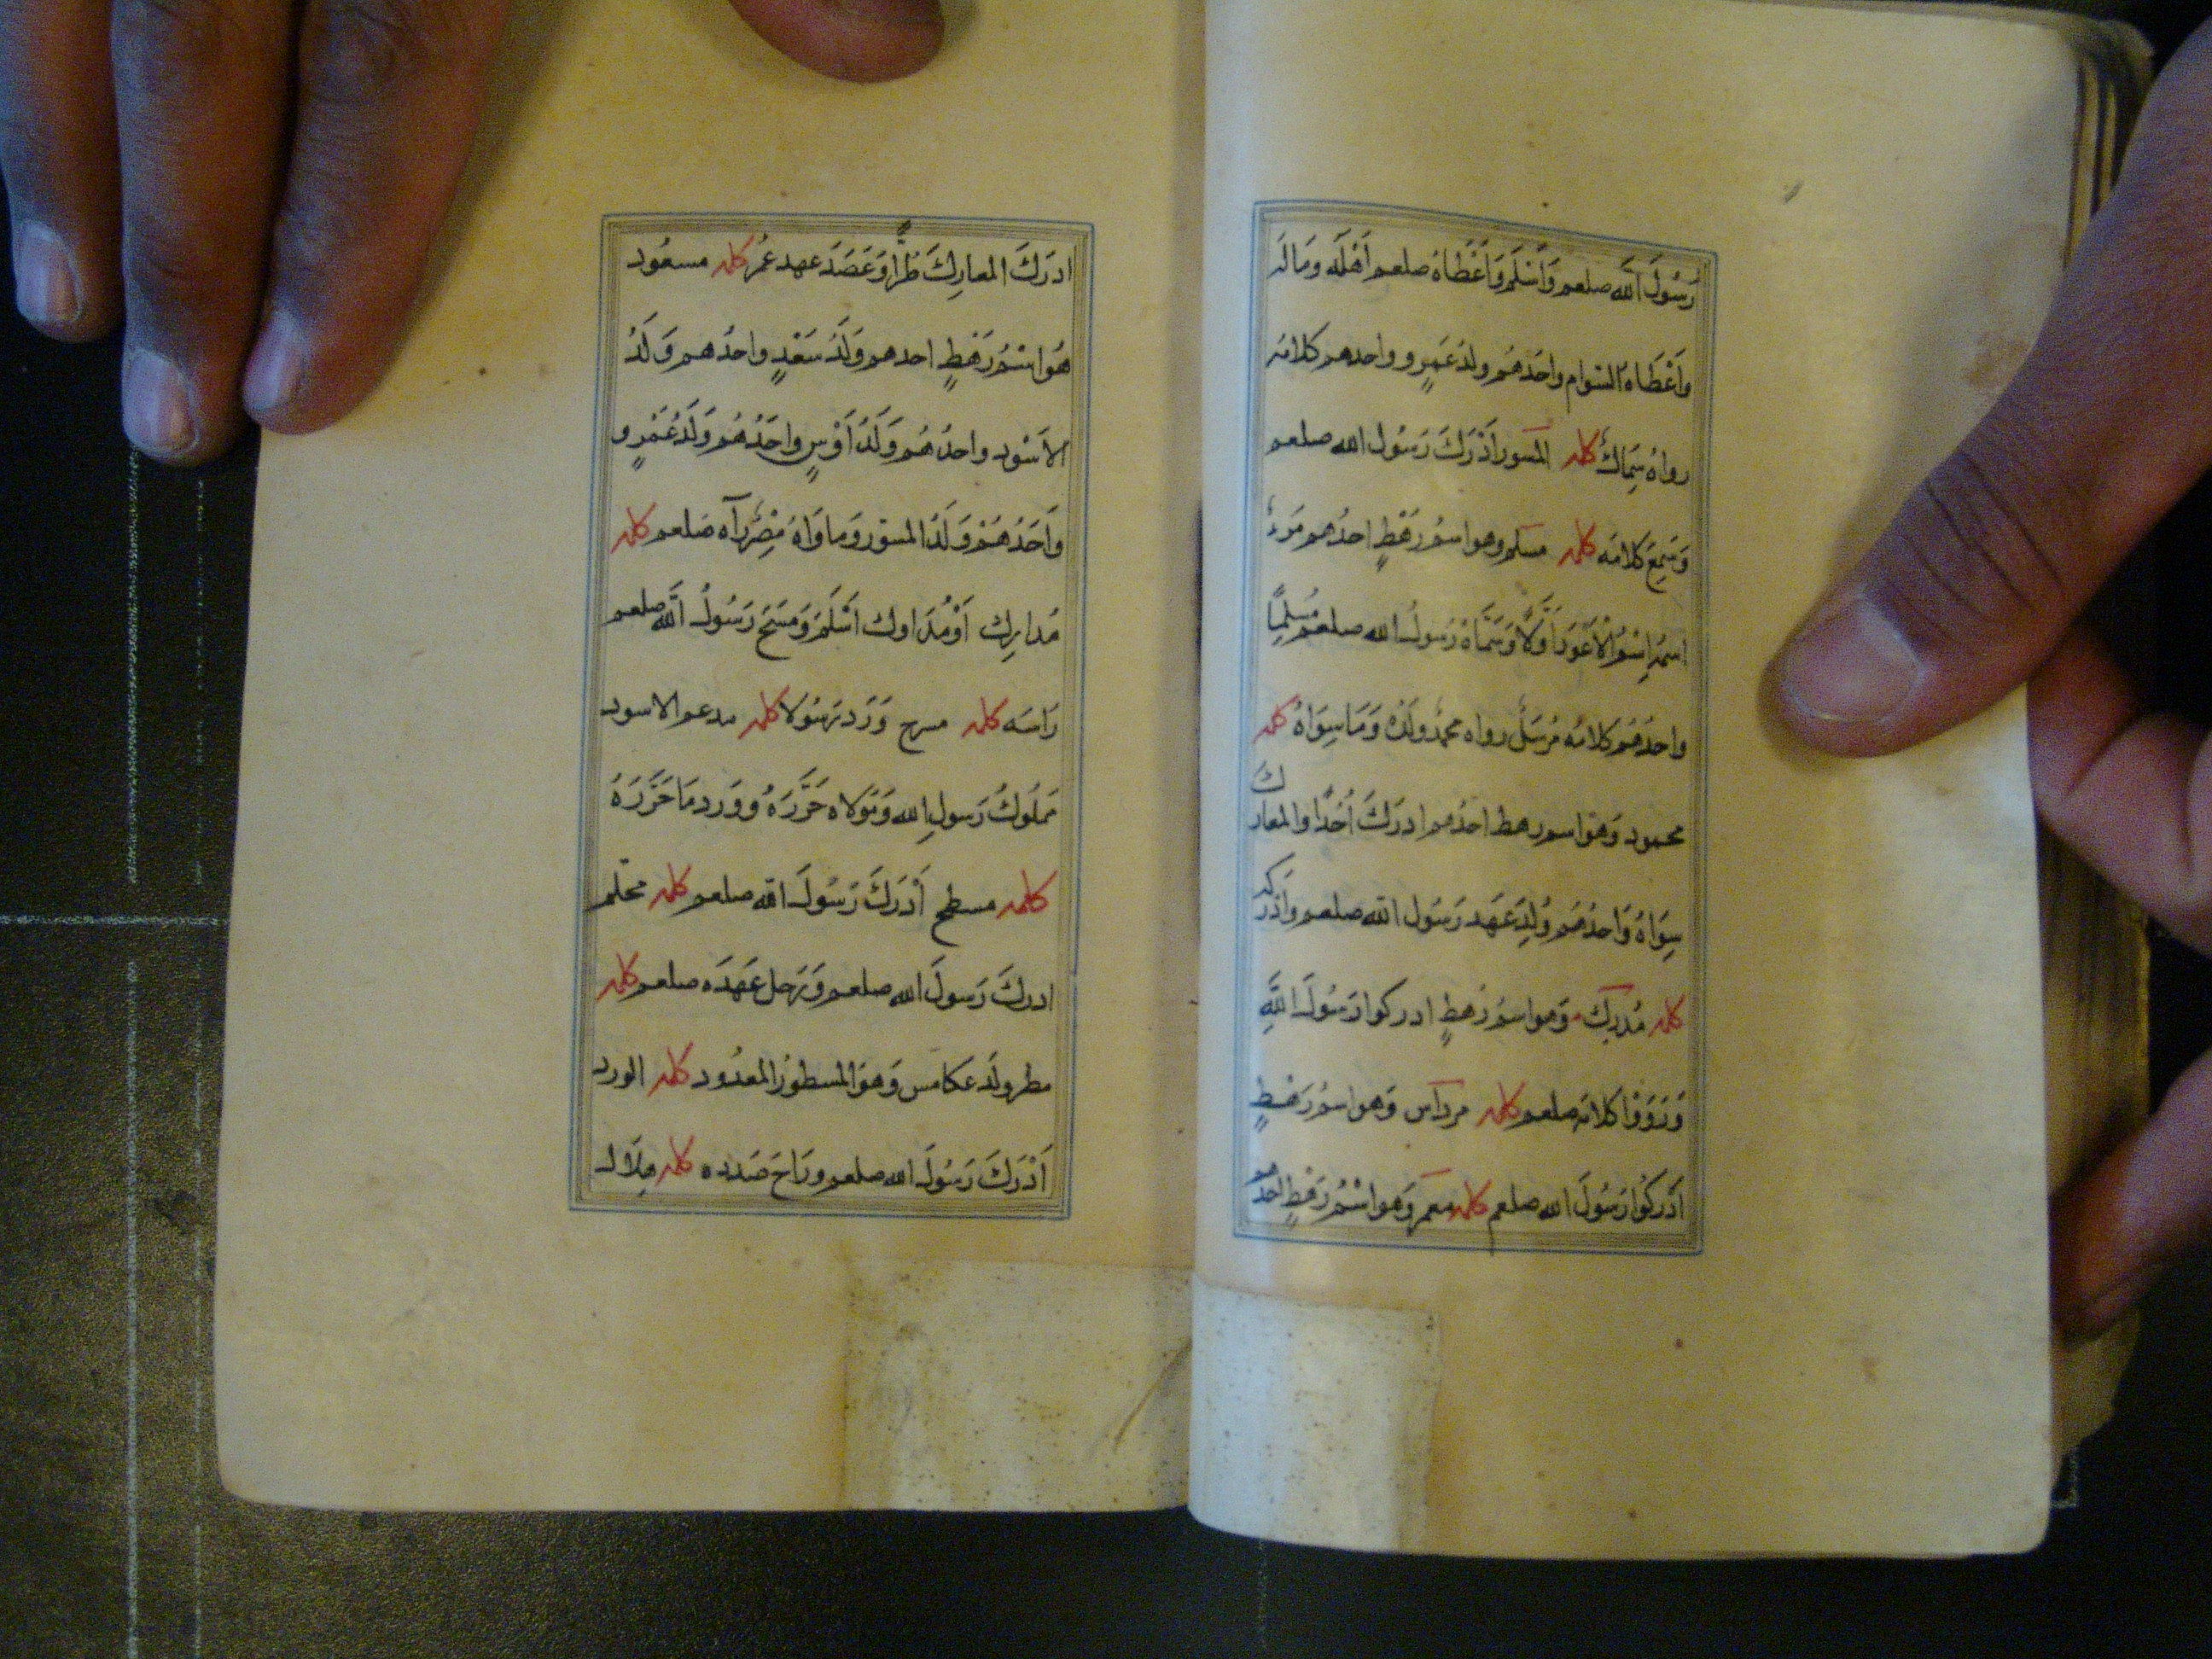 رَسُولَ اللّٰه صلعم وَاَسْلَمَ وَاَعْطَاهُ صلعم اَهْلَه وَمَالَه
وَاَعْطَاه السَّوَام واحَدهُم ولدُ عَمرٍو وواحدهم كلامُه
رواهُ سِمَاكٌ كلمه المسور اَدْرَكَ رَسُولَ الله صلعم
وَسَمِعَ كَلامَه كلمه مسلم وهو اسمُ رَهْطٍ احدُهم مَرءٌ
اسمُه اِسْمُ الْاَعْوَر اَوَّلًا وَسَمَّاهُ رَسُولُ الله صلعم مُسْلِمًا
واحدُهُم كَلامُه مُرسَلٌ رواه محمدٌ ولدُهُ وَمَا سِوَاهُ كلمه
محمود وَهوَ اسم رهط احدُهم ادرَكَ اُحُدًا والمعارك
سِوَاهُ وَاحدُهُم وُلِدَ عَهد رَسُول الله صلعم وادركه
كلمه مُدرِك وَهو اسمُ رَهطٍ ادركوا رَسُولَ اللّٰهِ
وَرَوَوْا كلامَه صلعم كلمه مرداس وَهو اسمُ رَهطٍ
اَدْرَكُوا رَسُولَ الله صلعم كلمه معمر وَهو اسْمُ رَهطٍ احدهم
ادرَكَ المعارِكَ طُرًّا وَعَصَدَ عهد عُمَر كلمه مسعُود
هُو اسْمُ رَهْطٍ احدهم وَلَدُ سَعْدٍ واحدُهم وَلَدُ
الاَسْود واحدُهُم وَلَدُ اَوْسٍ واحَدُهُم وَلَدُ عَمْرٍو
وَاَحَدُهُمْ وَلَدُ المسور وَما وَاهُ مِصْرَ رَآه صَلعم كلمه
مُدارِك اَوْ مُدَاوك اَسْلَمَ وَمَسَحَ رَسُولُ اللّٰه صلعم
رَاسَه كلمه مسرح وَرَدَ رَسُولا كلمه مدعم الاسود
مَملُوكُ رَسُولِ الله وَمَولاه حَرَّرَهُ وورد مَا حَرَّرَهُ
كلمه مسطح اَدْرَكَ رَسُولَ الله صلعم كلمه محلم
ادركَ رَسولَ الله صلعم وَرَحل عَهدَه صلعم كلمه
مطر ولَد عكامس وَهوَ المسطورُ المعدُود كلمه الورد
اَدْرَكَ رَسُولَ الله صلعم ورَاحَ صَدده كلمه هِلَال